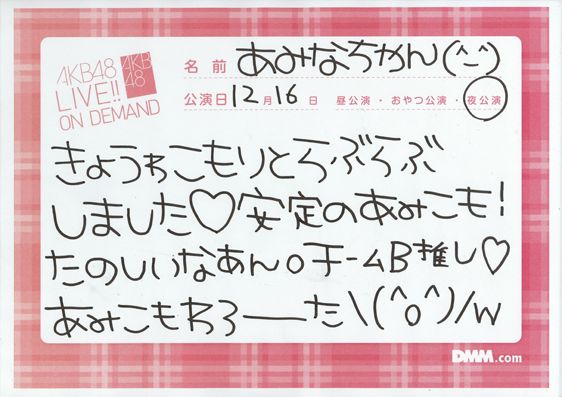 AKB48
LIVE!!
ON DEMAND
AKB
48
名前 あみなちゃん(^-^)
公演日 12月16日 昼公演・おやつ公演・夜公演
きょうゎこもりとらぶらぶ
しました♡安定のあみこも!
たのしいなあん。チームB推し♡
あみこもわろーーた\(^o^)/w
DMM.com